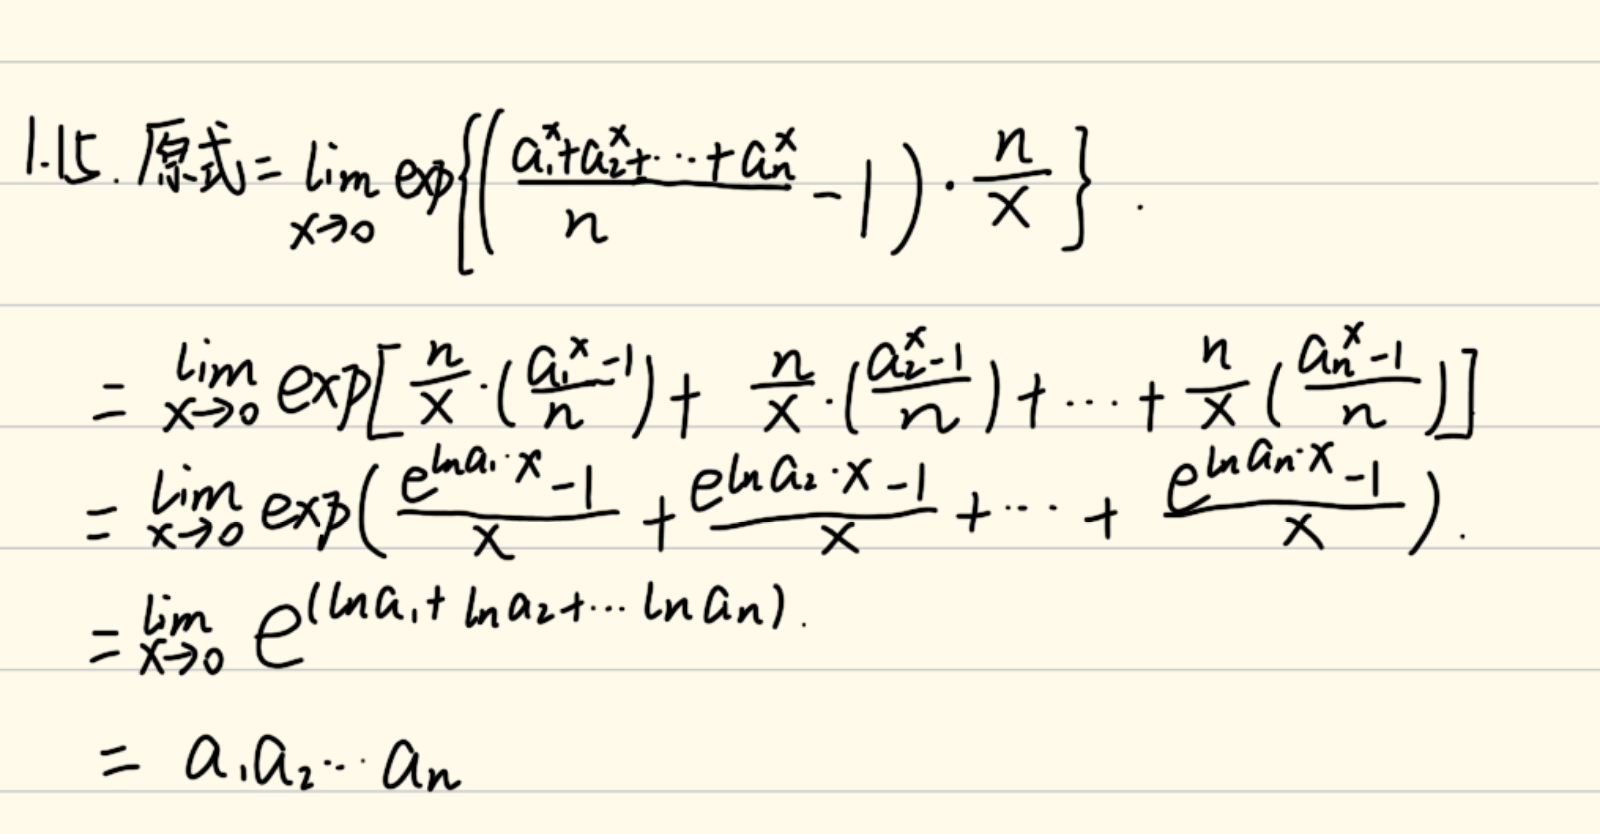 1.15. 原式 = lim_{x→0} exp{( (a₁^x+a₂^x+⋯+aₙ^x)/n - 1 ) · n/x} .
= lim_{x→0} exp[ n/x · ( (a₁^x-1)/n ) + n/x · ( (a₂^x-1)/n ) + ⋯ + n/x ( (aₙ^x-1)/n ) ]
= lim_{x→0} exp( (e^{ln a₁·x}-1)/x + (e^{ln a₂·x}-1)/x + ⋯ + (e^{ln aₙ·x}-1)/x ) .
= lim_{x→0} e^{(ln a₁+ ln a₂+⋯ ln aₙ)} .
= a₁a₂⋯aₙ